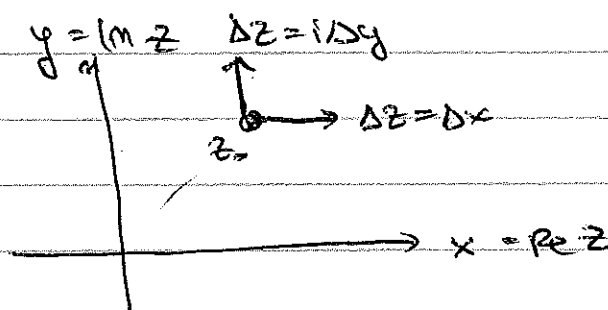 y = Im z Δz = iΔy
Δz = Δx
z₀
x = Re z